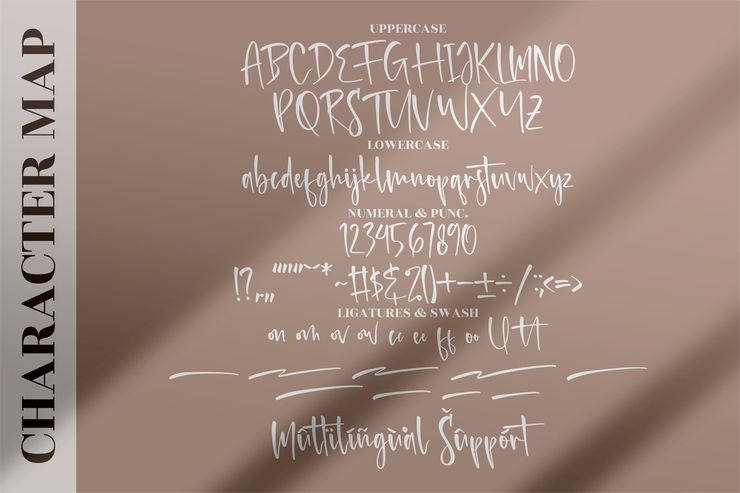 CHARACTER MAP
UPPERCASE
ABCDEFGHIJKLMNO
PQRSTUVWXYZ
LOWERCASE
abcdefghijklmnopqrstuvwxyz
NUMERAL & PUNC.
1234567890
~#$&%()+−±÷/:;<=>
LIGATURES & SWASH
on oh ov ow cc ee ff oo
Mûltïlíñgùål Šûppórt